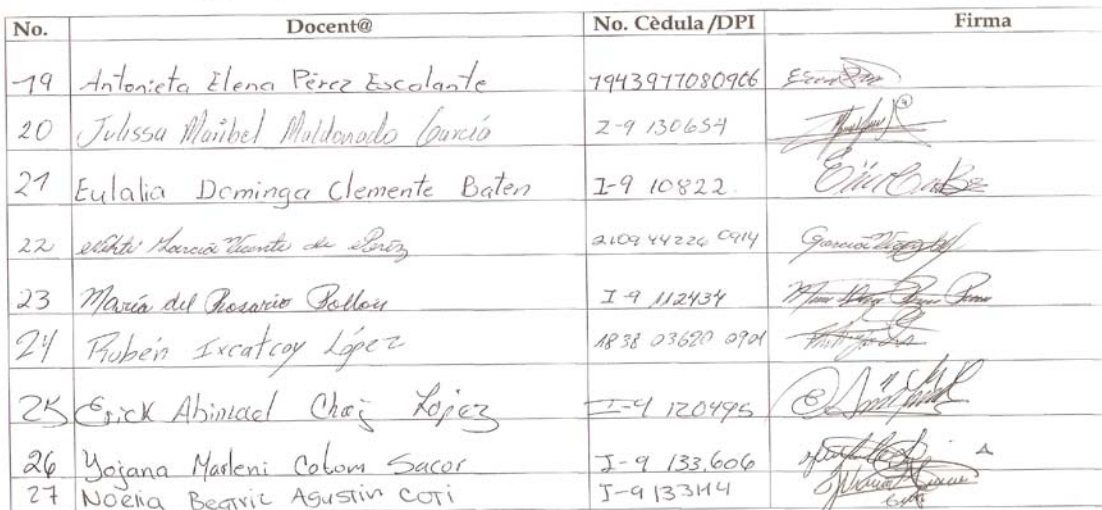 No. Docent@ No. Cèdula/DPI Firma
19 Antonieta Elena Pérez Escalante 1943977080906
20 Julissa Maribel Maldonado García I-9 130654
21 Eulalia Dominga Clemente Baten I-9 10822.
22 García Vicente de Peréz 2109 44226 0914
23 María del Rosario Pollou I-9 112434
24 Rubén Ixcatcoy López 1838 03620 0901
25 Erick Abimael Chaj López I-9 120495
26 Yojana Marleni Colom Sacor I-9 133,606
27 Noelia Beatriz Agustin COTi I-9 133114